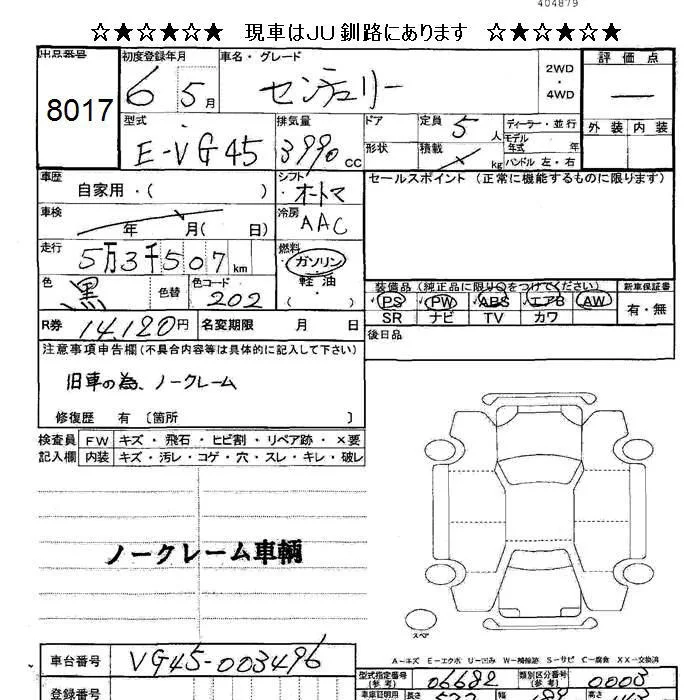 404879
☆★☆★☆★ 現車はJU釧路にあります ☆★☆★☆★
出品番号 8017
初度登録年月 6 5月
車名・グレード センチュリー
2WD・4WD
評価点 —
外装 内装
型式 E-VG45
排気量 3990 CC
ドア
形状
定員 5人
積載 kg
ディーラー・並行
モデル年式 年
ハンドル 左・右
車歴 自家用・( )
シフト オートマ
セールスポイント(正常に機能するものに限ります)
車検 年 月( 日)
冷房 AAC
走行 5万3千507km
燃料 ガソリン
軽油
( )
色 黒
色替
色コード 202
装備品(純正品に限り○をつけてください)
PS PW ABS エアB AW
SR ナビ TV カワ
新車保証書
有・無
R券 14,120円
名変期限 月 日
後日品
注意事項申告欄(不具合内容等は具体的に記入して下さい)
旧車の為、ノークレーム
修復歴 有〔箇所 〕
検査員 FW キズ・飛石・ヒビ割・リペア跡・×要
記入欄 内装 キズ・汚レ・コゲ・穴・スレ・キレ・破レ
ノークレーム車輌
スペア
A-キズ E-エクボ U-凹み W-補修跡 S-サビ C-腐食 XX-交換済
車台番号 VG45-003496
型式指定番号(参考) 06682
類別区分番号(参考) 0003
登録番号
車庫証明用 長さ 幅 高さ